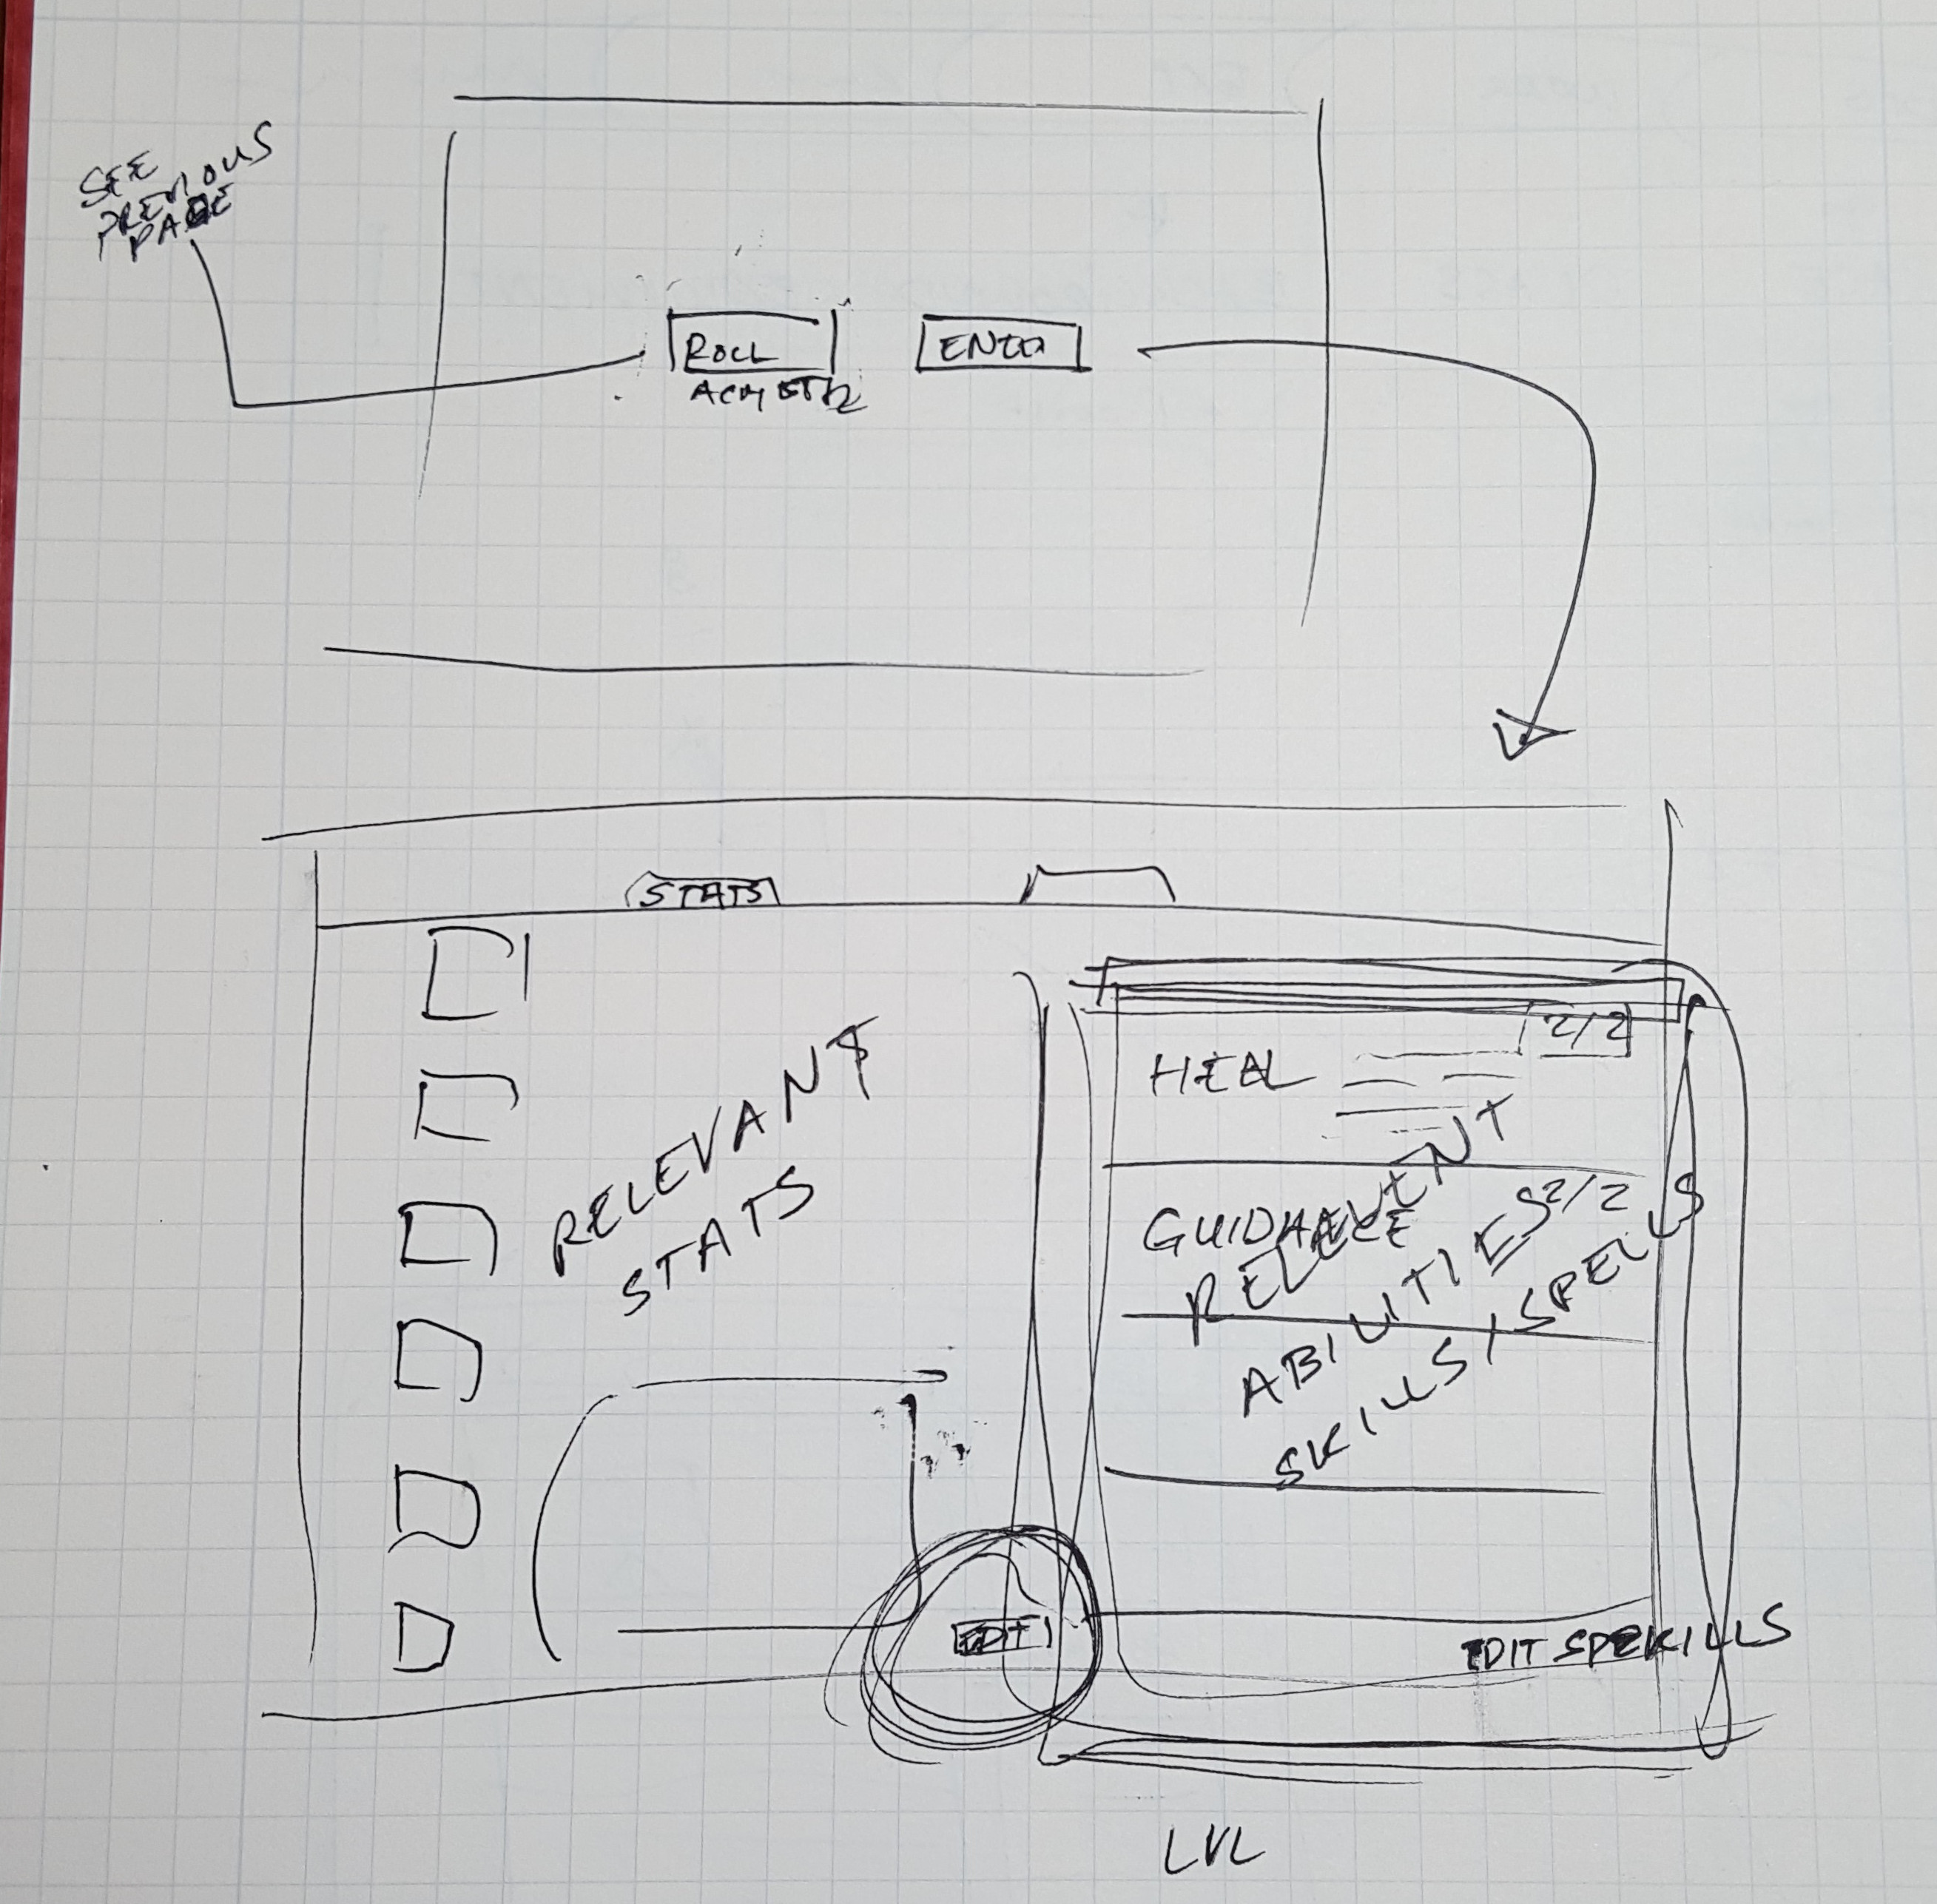 SEE
PREVIOUS
PAGE
ROLL
ENTER
STATS
RELEVANT
STATS
2/2
HEAL
GUIDANCE
2/2
RELEVENT
ABILITIES
SKILLS / SPELLS
EDIT
EDIT SPEKILLS
LVL